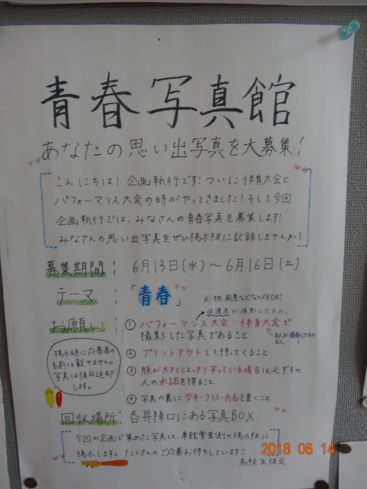 青春写真館
あなたの思い出写真を大募集!
こんにちは!企画執行です!ついに体育大会と
パフォーマンス大会の時がやってきました!そして今回
企画執行では、みなさんの青春写真を募集します!
みなさんの思い出写真をぜひ掲示板に記録しませんか?
募集期間: 6月13日(水)~6月16日(土)
テーマ: 「青春」
人・物・風景などなんでもOK!
お願い:
① パフォーマンス大会・体育大会で
撮影した写真であること
② プリントアウトして持ってくること
③ 顔が大きくはっきり写っている場合は必ずその
人の承諾を得ること
④ 写真の裏に学年・クラス・氏名を書くこと
掲示時に応募者の
名前は載せません
写真は後日返却
します。
回収場所: 各昇降口にある写真BOX
今回の企画で集めた写真は、
掲示します。たくさんのご応募お待ちしています!!
高校生徒会
2018 06 14